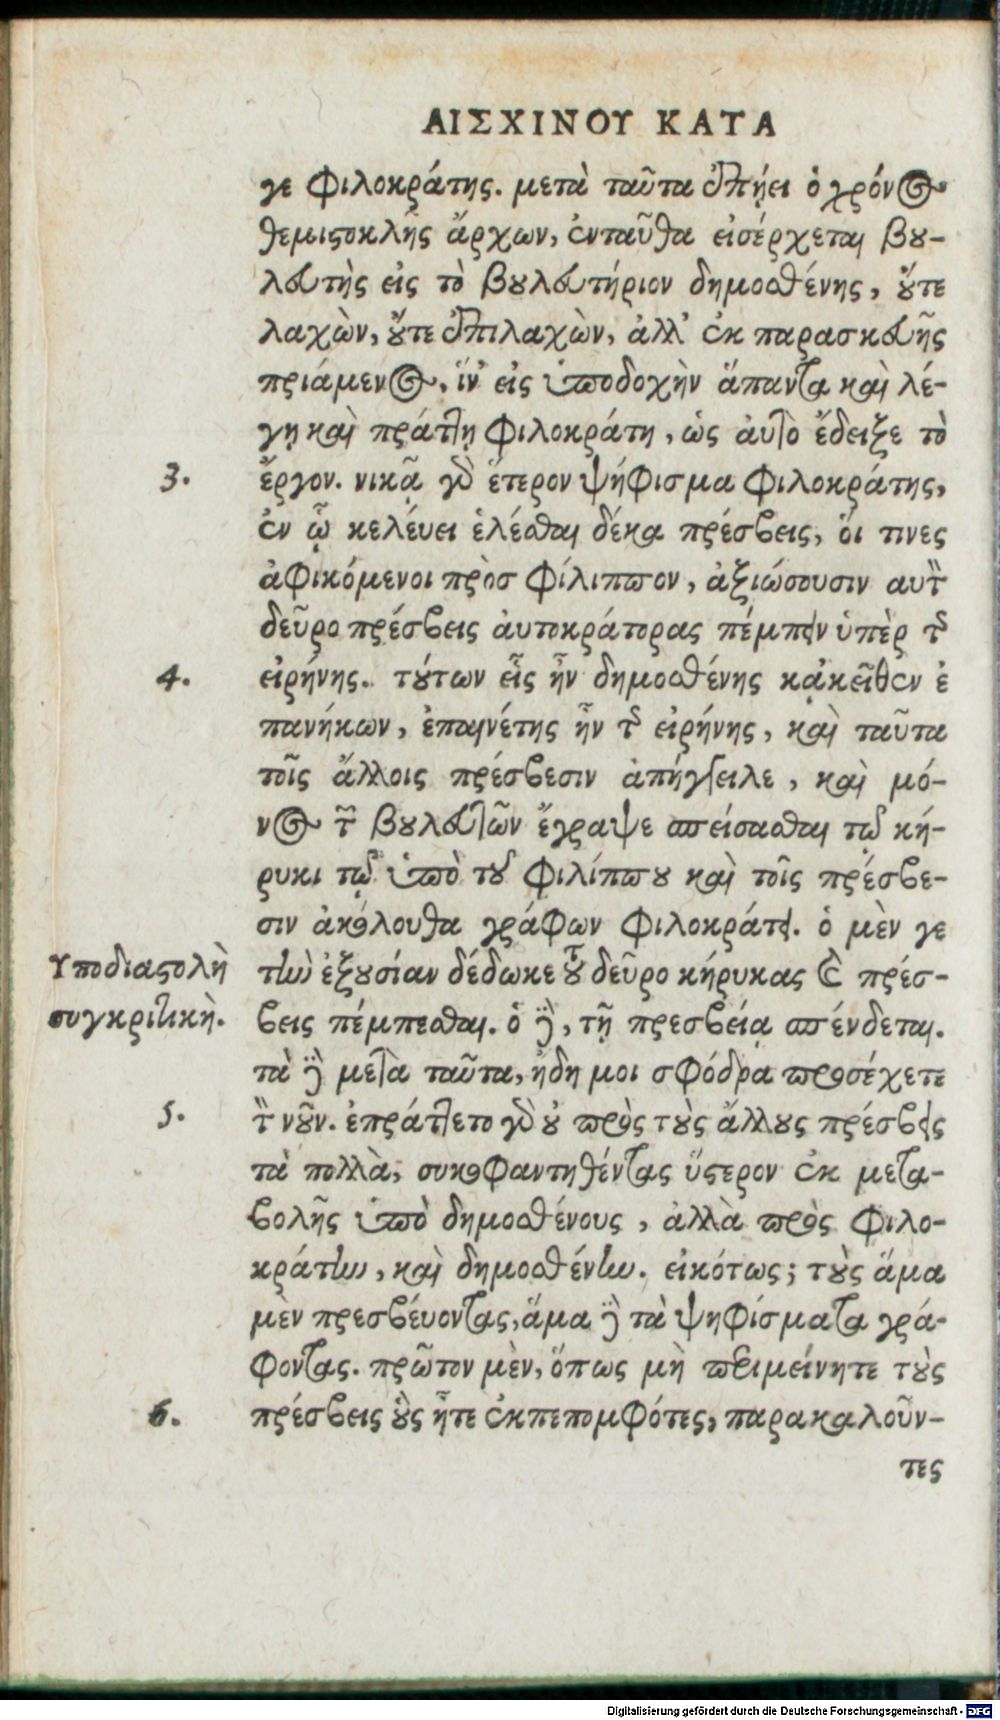 ΑΙΣΧΙΝΟΥ ΚΑΤΑ
γε Φιλοκράτης. μετὰ ταῦτα ἐπῄει ὁ χρόνος
θεμιστοκλῆς ἄρχων, ἐνταῦθα εἰσέρχεται βου-
λευτὴς εἰς τὸ βουλευτήριον δημοσθένης, οὔτε
λαχὼν, οὔτε ἐπιλαχὼν, ἀλλ' ἐκ παρασκευῆς
πριάμενος, ἵν' εἰς ὑποδοχὴν ἅπαντα καὶ λέ-
γῃ καὶ πράττῃ Φιλοκράτῃ, ὡς αὐτὸ ἔδειξε τὸ
3.
ἔργον. νικᾷ γὰρ ἕτερον ψήφισμα Φιλοκράτης,
ἐν ᾧ κελέυει ἑλέσθαι δέκα πρέσβεις, ὅι τινες
ἀφικόμενοι πρὸς Φίλιππον, ἀξιώσουσιν αυτὸν
δεῦρο πρέσβεις ἀυτοκράτορας πέμπειν ὑπὲρ τῆς
4.
εἰρήνης. τούτων εἷς ἦν δημοσθένης κἀκεῖθεν ἐ
πανήκων, ἐπαινέτης ἦν τῆς εἰρήνης, καὶ ταῦτα
τοῖς ἄλλοις πρέσβεσιν ἀπήγγειλε, καὶ μό-
νος τῶν βουλευτῶν ἔγραψε σπείσασθαι τῷ κή-
ρυκι τῷ ὑπὸ τοῦ Φιλίππου καὶ τοῖς πρέσβε-
σιν ἀκόλουθα γράφων Φιλοκράτει. ὁ μὲν γε
Υποδιαστολὴ
συγκριτικὴ.
τὴν ἐξουσίαν δέδωκε τοῦ δεῦρο κήρυκας καὶ πρέσ-
βεις πέμπεσθαι. ὁ δὲ, τῇ πρεσβείᾳ σπένδεται.
τὰ δὲ μετὰ ταῦτα, ἤδη μοι σφόδρα προσέχετε
5.
τὸν νοῦν. ἐπράττετο γὰρ οὐ πρὸς τοὺς ἄλλους πρέσβεις
τὰ πολλὰ, συκοφαντηθέντας ὕστερον ἐκ μετα-
βολῆς ὑπὸ δημοσθένους, ἀλλὰ πρὸς Φιλο-
κράτην, καὶ δημοσθένην. εἰκότως; τοὺς ἅμα
μὲν πρεσβέυοντας, ἅμα δὲ τὰ ψηφίσματα γρά-
φοντας. πρῶτον μὲν, ὅπως μὴ περιμείνητε τοὺς
6.
πρέσβεις οὓς ἦτε ἐκπεπομφότες, παρακαλοῦν-
τες
Digitalisierung gefördert durch die Deutsche Forschungsgemeinschaft - DFG